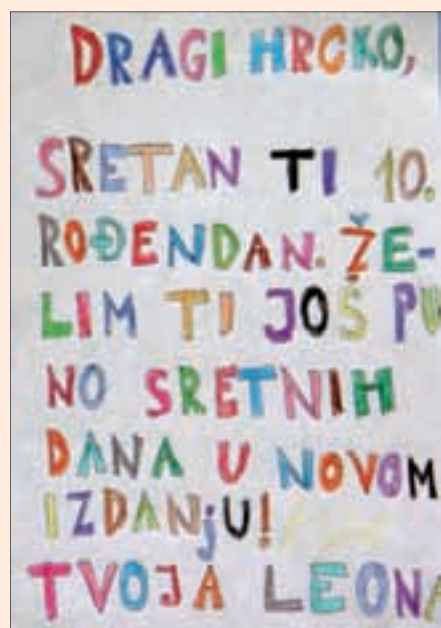 DRAGI HRCKO,
SRETAN TI 10.
ROĐENDAN. ŽE-
LIM TI JOŠ PU
NO SRETNIH
DANA U NOVOM
IZDANjU!
TVOJA LEONA